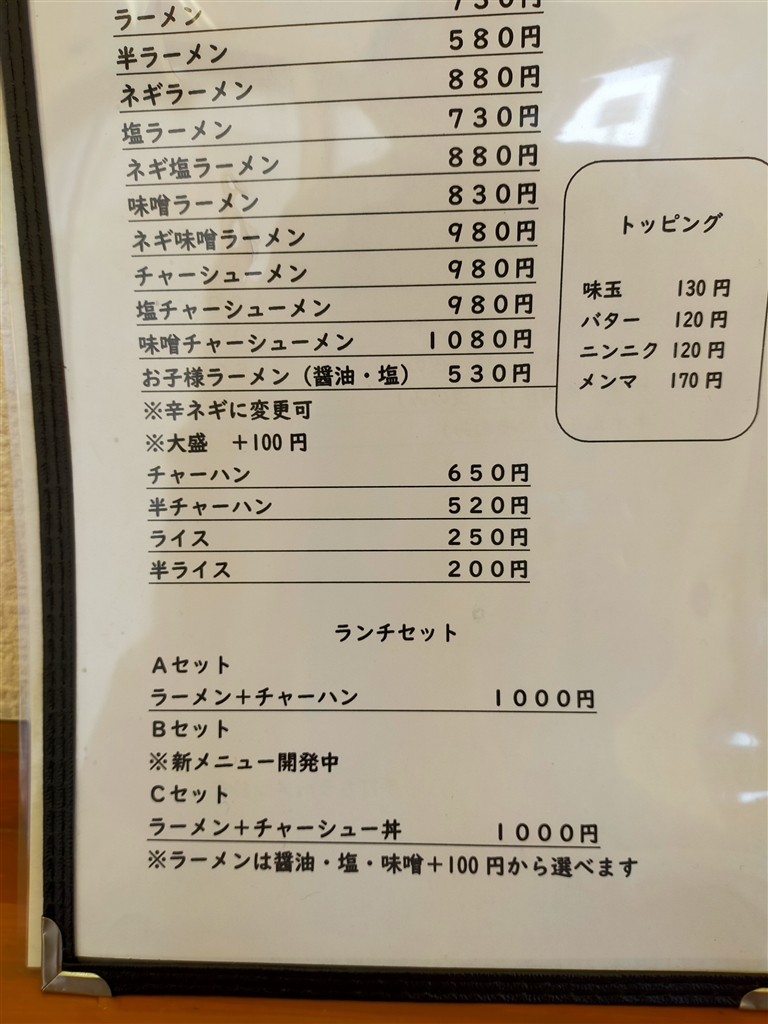 ラーメン 730円
半ラーメン 580円
ネギラーメン 880円
塩ラーメン 730円
ネギ塩ラーメン 880円
味噌ラーメン 830円
ネギ味噌ラーメン 980円
チャーシューメン 980円
塩チャーシューメン 980円
味噌チャーシューメン 1080円
お子様ラーメン（醤油・塩） 530円
※辛ネギに変更可
※大盛　＋100円
チャーハン 650円
半チャーハン 520円
ライス 250円
半ライス 200円
トッピング
味玉 130円
バター 120円
ニンニク 120円
メンマ 170円
ランチセット
Aセット
ラーメン＋チャーハン 1000円
Bセット
※新メニュー開発中
Cセット
ラーメン＋チャーシュー丼 1000円
※ラーメンは醤油・塩・味噌＋100円から選べます